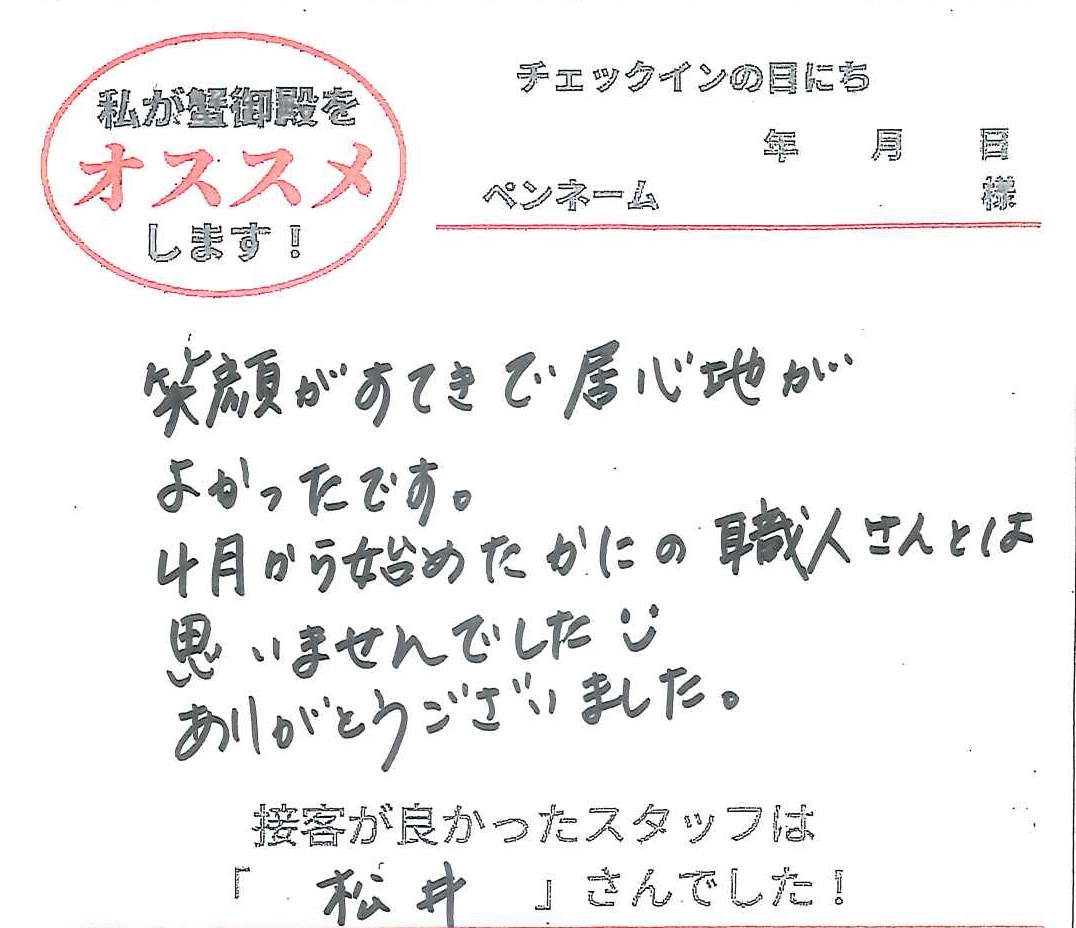 私が蟹御殿を
オススメ
します！
チェックインの日にち
年 月 日
ペンネーム 様
笑顔がすてきで居心地が
よかったです。
4月から始めたかにの職人さんとは
思いませんでした
ありがとうございました。
接客が良かったスタッフは
「 松井 」さんでした！